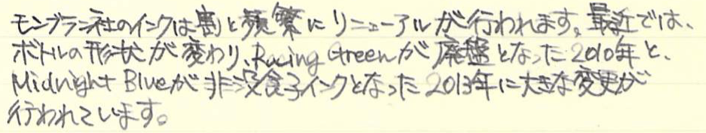 モンブラン社のインクは、割と頻繁にリニューアルが行われます。最近では、
ボトルの形状が変わり、Racing Greenが廃盤となった2010年と、
Midnight Blueが非没食子インクとなった2013年に大きな変更が
行われています。